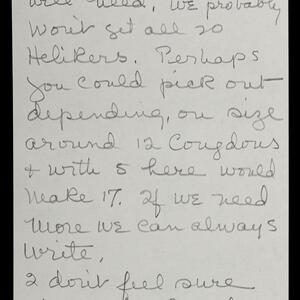 will need. We probably
won't get all 20
Helikers. Perhaps
you could pick out
depending, on size
around 12 Congdons
& with 5 here would
make 17. If we need
more we can always
write.
I don't feel sure